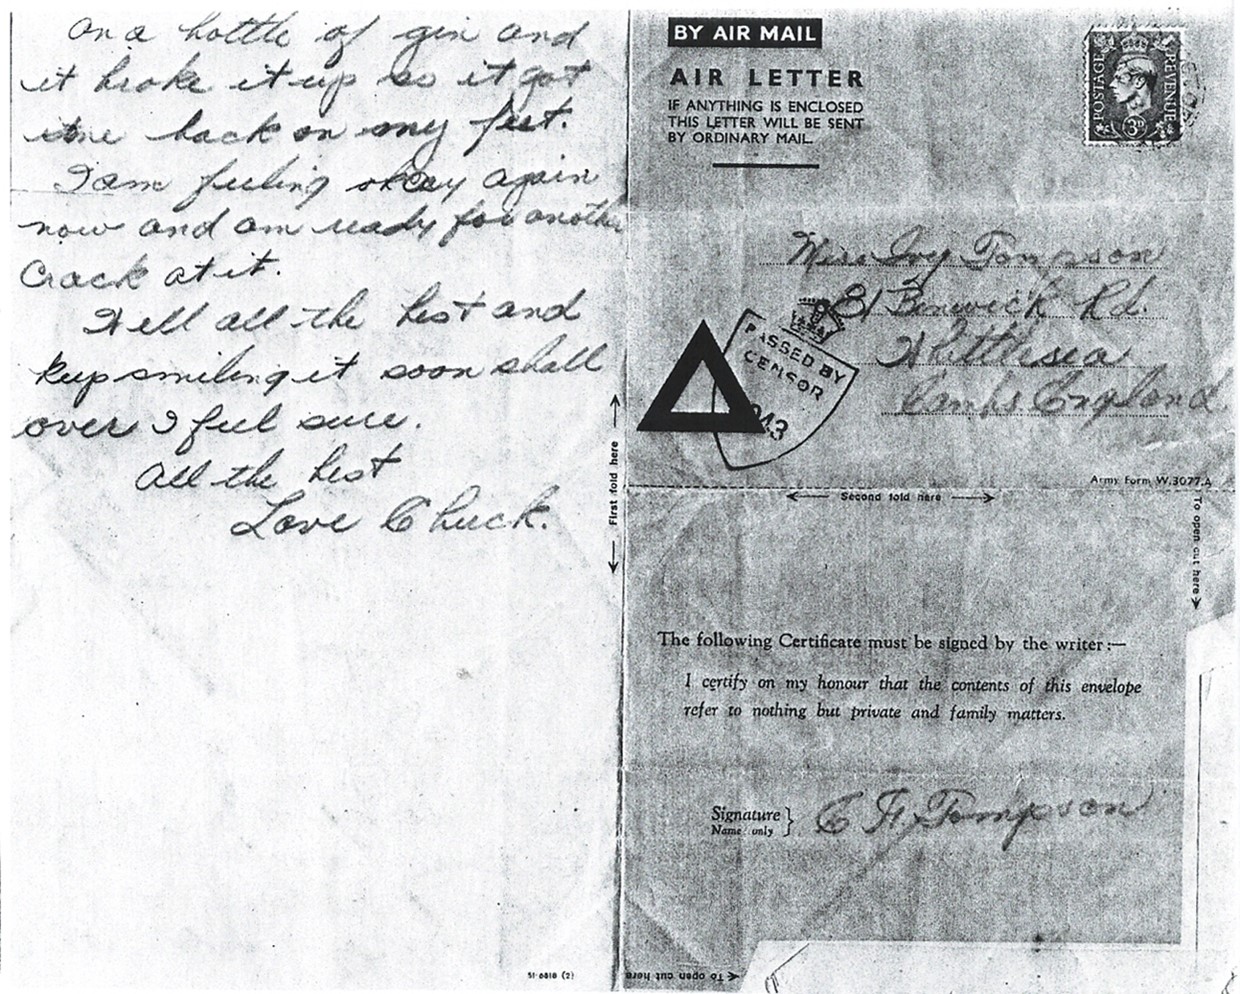 on a bottle of gin and
it broke it up so it got
me back on my feet.
I am feeling okay again
now and am ready for another
Crack at it.
Well all the best and
keep smiling it soon shall
over I feel sure.
All the best
Love Chuck.
51-6810 (2)
First fold here
BY AIR MAIL
AIR LETTER
IF ANYTHING IS ENCLOSED
THIS LETTER WILL BE SENT
BY ORDINARY MAIL.
POSTAGE
REVENUE
3D
Miss Ivy Tompson
Benwick Rd.
Whittlesea
Cambs England
PASSED BY
CENSOR
Army Form W.3077.A
Second fold here
To open cut here
The following Certificate must be signed by the writer:—
I certify on my honour that the contents of this envelope
refer to nothing but private and family matters.
Signature
Name only
C F Tompson
To open cut here